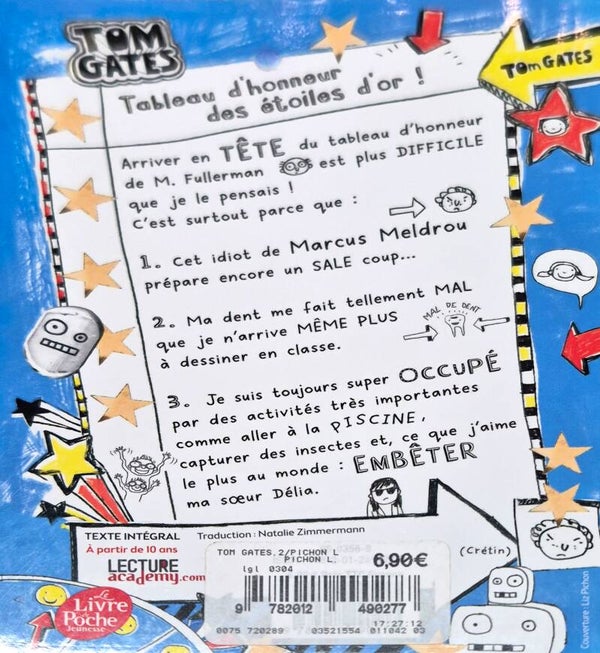 TOM
GATES
TOM GATES
Tableau d'honneur
des étoiles d'or !
Arriver en TÊTE du tableau d'honneur
de M. Fullerman est plus DIFFICILE
que je le pensais !
C'est surtout parce que :
1. Cet idiot de Marcus Meldrou
prépare encore un SALE coup...
2. Ma dent me fait tellement MAL
que je n'arrive MÊME PLUS
à dessiner en classe.
MAL DE DENT
3. Je suis toujours super OCCUPÉ
par des activités très importantes
comme aller à la PISCINE,
capturer des insectes et, ce que j'aime
le plus au monde : EMBÊTER
ma sœur Délia.
TEXTE INTÉGRAL
À partir de 10 ans
LECTURE
academy.com
Traduction : Natalie Zimmermann
(Crétin)
TOM GATES.2/PICHON L
PICHON L.
lgl 0304
6,90€
9 782012 490277
17:27:12
0075 720289 03521554 011042 03
Le
Livre
de
Poche
Jeunesse
Couverture : Liz Pichon